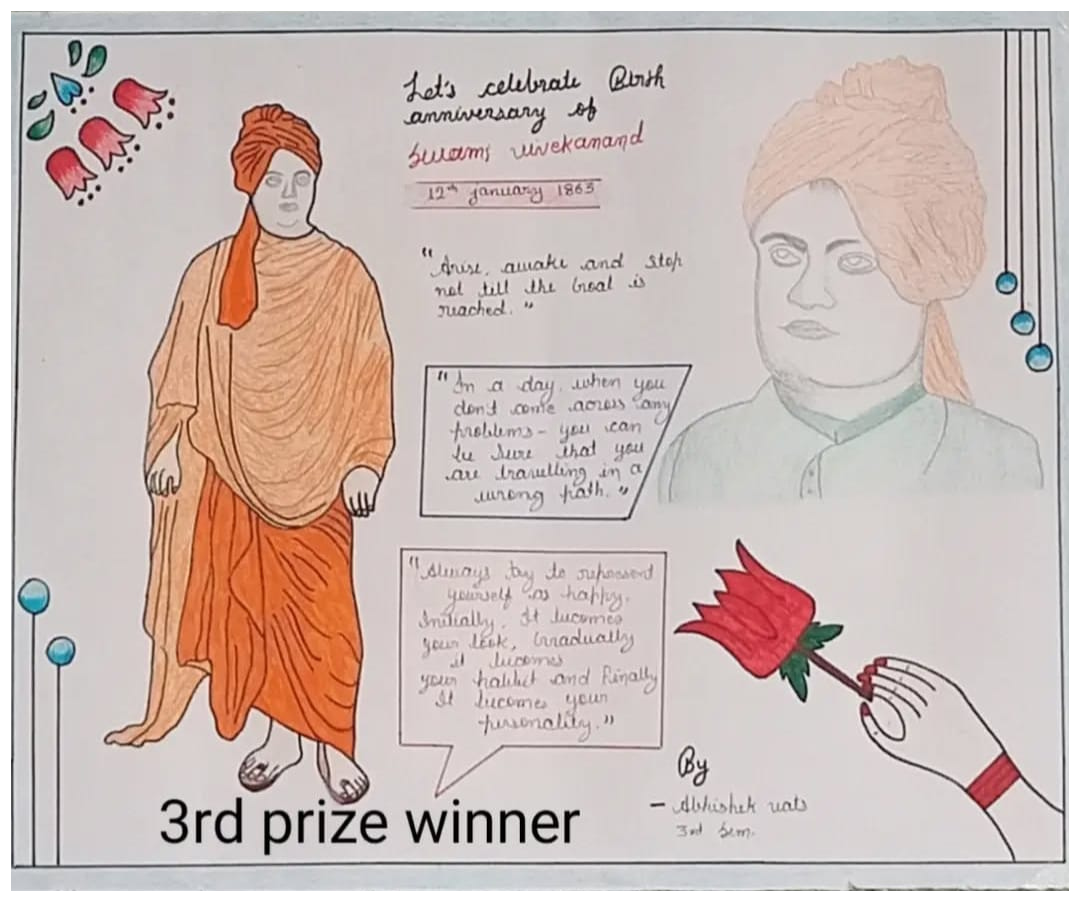 Let's celebrate Birth
anniversary of
Swami vivekanand
12th january 1863
"Arise, awake and stop
not till the Goal is
reached."
"In a day, when you
don't come across any
problems - you can
be sure that you
are travelling in a
wrong path."
"Always try to represent
yourself as happy.
Initially, It becomes
your look, Gradually
it becomes
your habbit and Finally
It becomes your
personality."
By
- Abhishek vats
3rd sem.
3rd prize winner